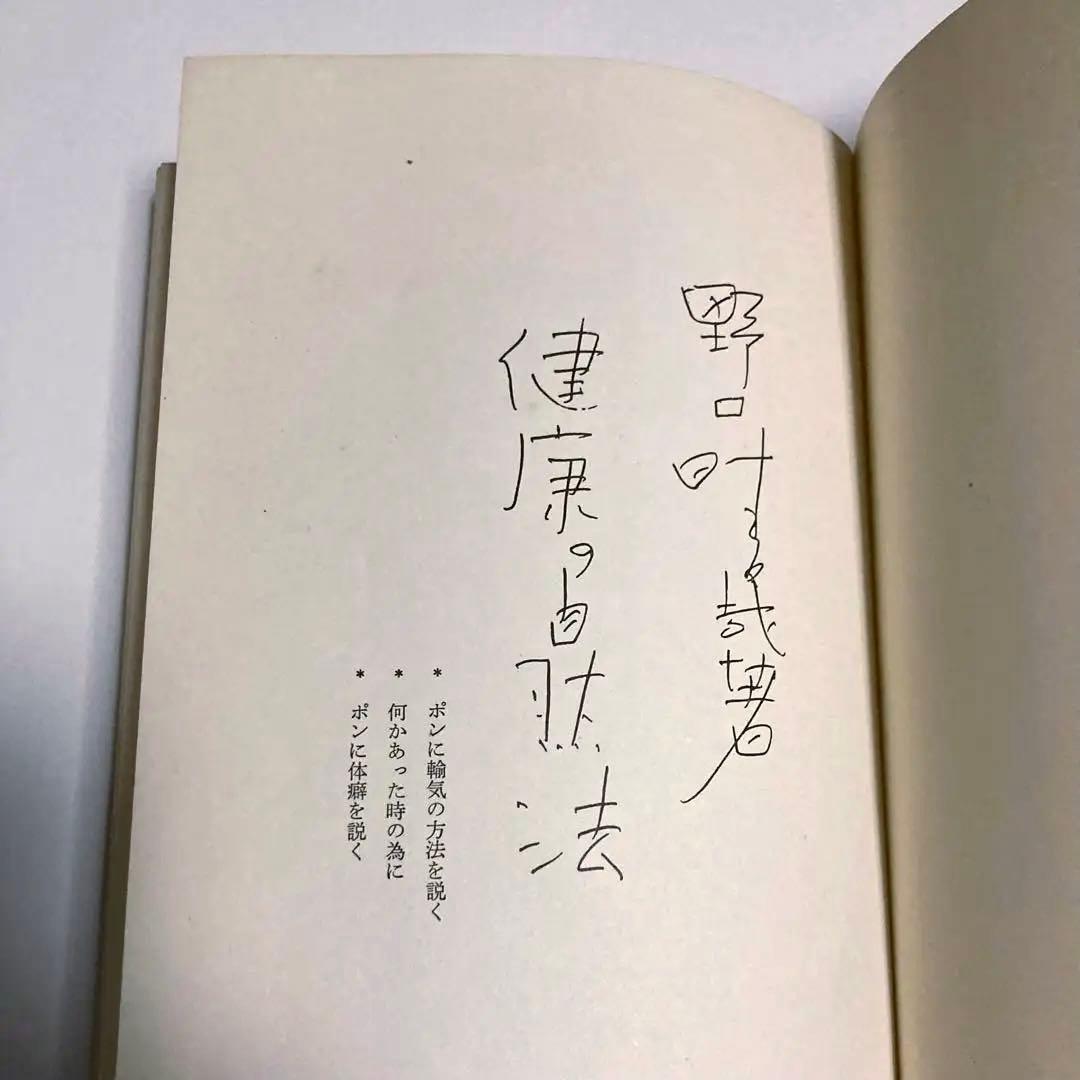 野口晴哉著
健康の自然法
* ポンに輸気の方法を説く
* 何かあった時の為に
* ポンに体癖を説く